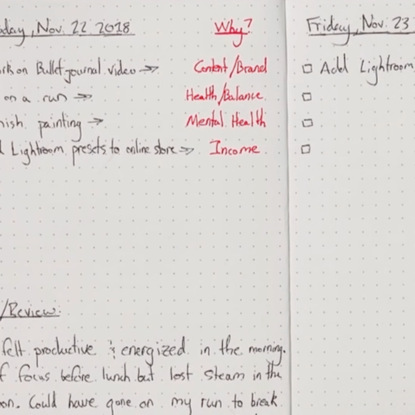 day, Nov. 22 2018 Why?
rk on Bullet journal video → Content/Brand
on a run → Health/Balance
nish painting → Mental Health
Lightroom presets to online store → Income
/Review:
felt productive & energized in the morning.
f focus before lunch but lost steam in the
on. Could have gone on my run to break
Friday, Nov. 23
Add Lightroom